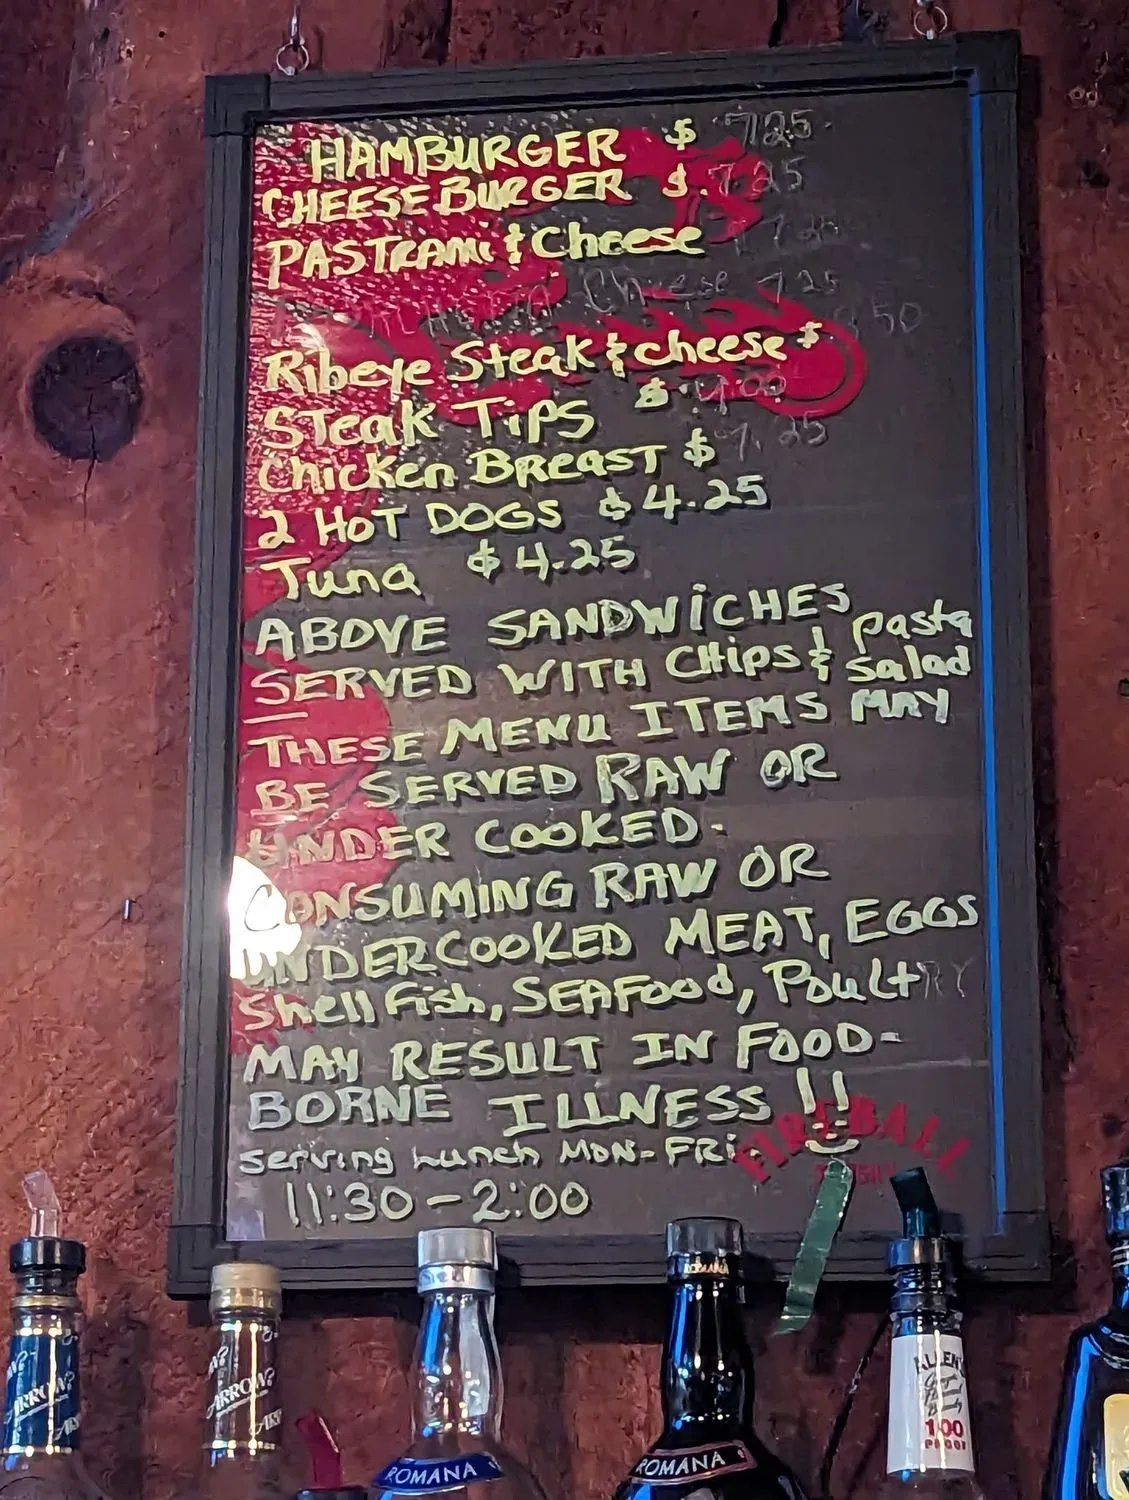 HAMBURGER $ 7.25
CHEESEBURGER $ 7.25
PASTRAMI & Cheese 7.25
Cheese 7.25
Ribeye Steak & cheese $ 50
Steak Tips $
Chicken Breast $ 7.25
2 HOT DOGS $4.25
Tuna $4.25
ABOVE SANDWiCHES
SERVED WITH CHips & pasta salad
THESE MENU ITEMS MAY
BE SERVED RAW OR
UNDER COOKED.
CONSUMING RAW OR
UNDERCOOKED MEAT, EGGS
Shellfish, SEAFood, PoultRY
MAY RESULT IN FOOD-
BORNE ILLNESS !!
serving Lunch MON-FRi.
11:30-2:00
FIREBALL
ARROW
ARROW
ROMANA
ROMANA
ALLEN'S
100
PROOF